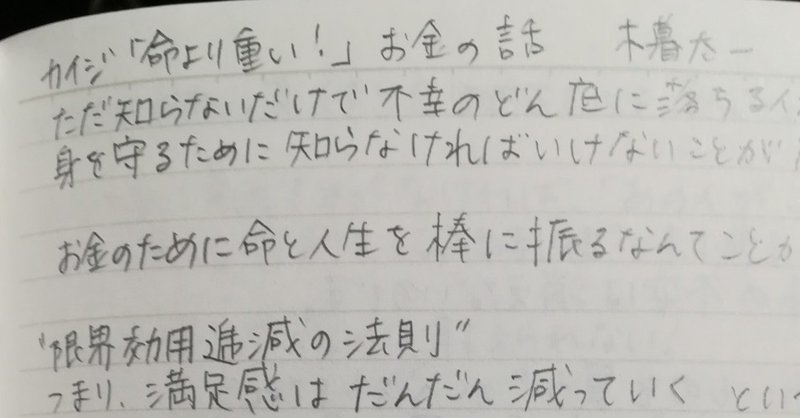 カイジ「命より重い!」お金の話　木暮太一
ただ知らないだけで不幸のどん底に落ちる人
身を守るために知らなければいけないことが
お金のために命と人生を棒に振るなんてことが
"限界効用逓減の法則"
つまり、満足感はだんだん減っていく とい